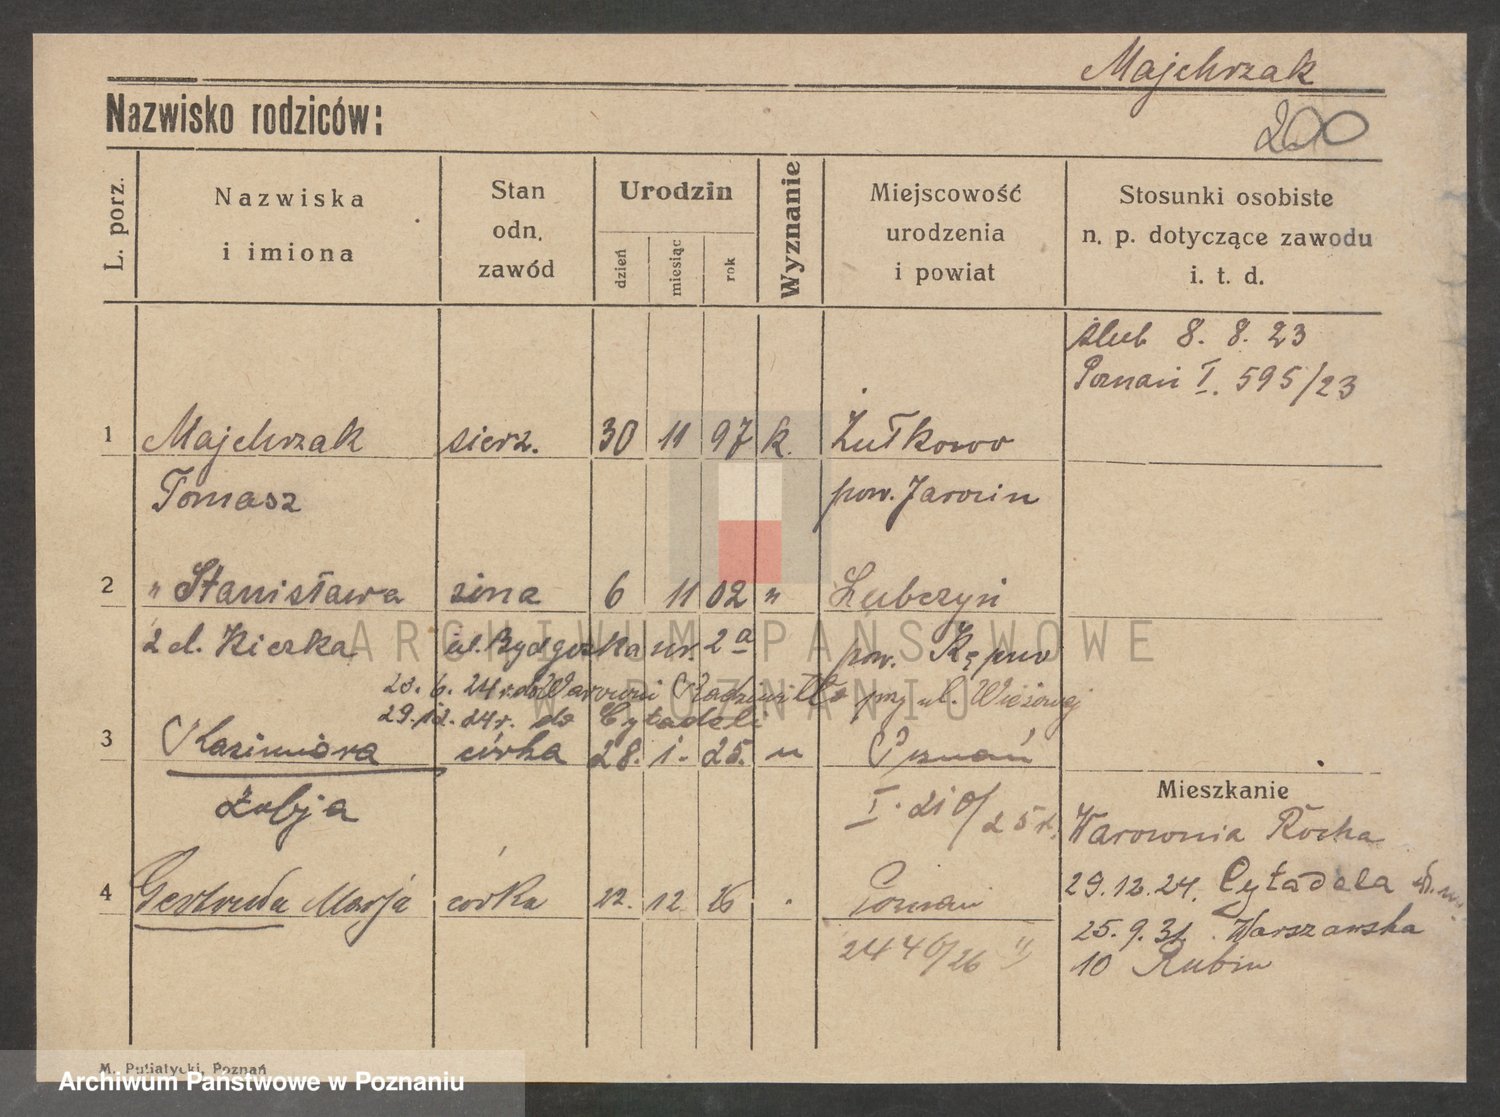 Majchrzak
Nazwisko rodziców:
200
L. porz.
Nazwiska
i imiona
Stan
odn.
zawód
Urodzin
dzień
miesiąc
rok
Wyznanie
Miejscowość
urodzenia
i powiat
Stosunki osobiste
n. p. dotyczące zawodu
i. t. d.
ślub 8. 8. 23
Poznań I. 595/23
1 Majchrzak sierz. 30 11 97 k. Żułkowo
Tomasz pow. Jarocin
2 " Stanisława żona 6 11 02 " Lubczyń
z d. Kiczka ul. Bydgoska nr. 2a pow. Kępno
23. 6. 24 r. do Warowni Radziwiłła przy ul. Wieżowej
29.12. 24 r. do Cytadeli
3 Kazimiera córka 28. 1. 25. " Poznań
Zofja I. 210/25 r.
Mieszkanie
Warownia Rocha
4 Gertruda Marja córka 12. 12 26 . Poznań
29.12.24. Cytadela
2446/26 II
25.9.31. Warszawska
10 Rubin
M. Putiatycki, Poznań
ARCHIWUM PAŃSTWOWE
W POZNANIU
Archiwum Państwowe w Poznaniu